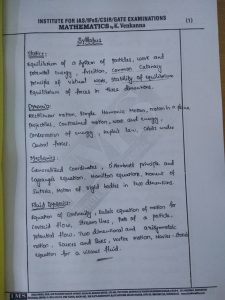 INSTITUTE FOR IAS/IFoS/CSIR/GATE EXAMINATIONS
MATHEMATICS by K. Venkanna
(1)
Syllabus
Statics:
Equilibrium of a system of particles, work and
potential energy, friction, common catenary
principle of virtual work, stability of equilibrium
Equilibrium of forces in three dimensions.
Dynamics:
Rectilinear motion, Simple Harmonic Motion, motion in a plane
Projectiles, constrained motion, work and energy,
Conservation of energy, Kepler's law, Orbits under
Central forces.
Mechanics:
Generalised Coordinates, D'Alembert principle and
Lagrange's equation, Hamilton equations, moment of
inertia, Motion of rigid bodies in two dimensions.
Fluid Dynamics:
Equation of Continuity, Euler's equation of motion for
inviscid flow, Stream lines, Path of a particle,
potential flow, Two dimensional and axisymmetric
motion, Sources and Sinks, vortex motion, Navier-Stokes
equation for a viscous fluid.